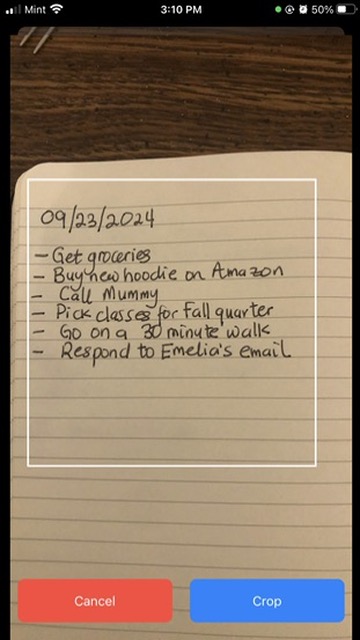 Mint 3:10 PM 50%
09/23/2024
- Get groceries
- Buy new hoodie on Amazon
- Call Mummy
- Pick classes for Fall quarter
- Go on a 30 minute walk
- Respond to Emelia's email
Cancel Crop